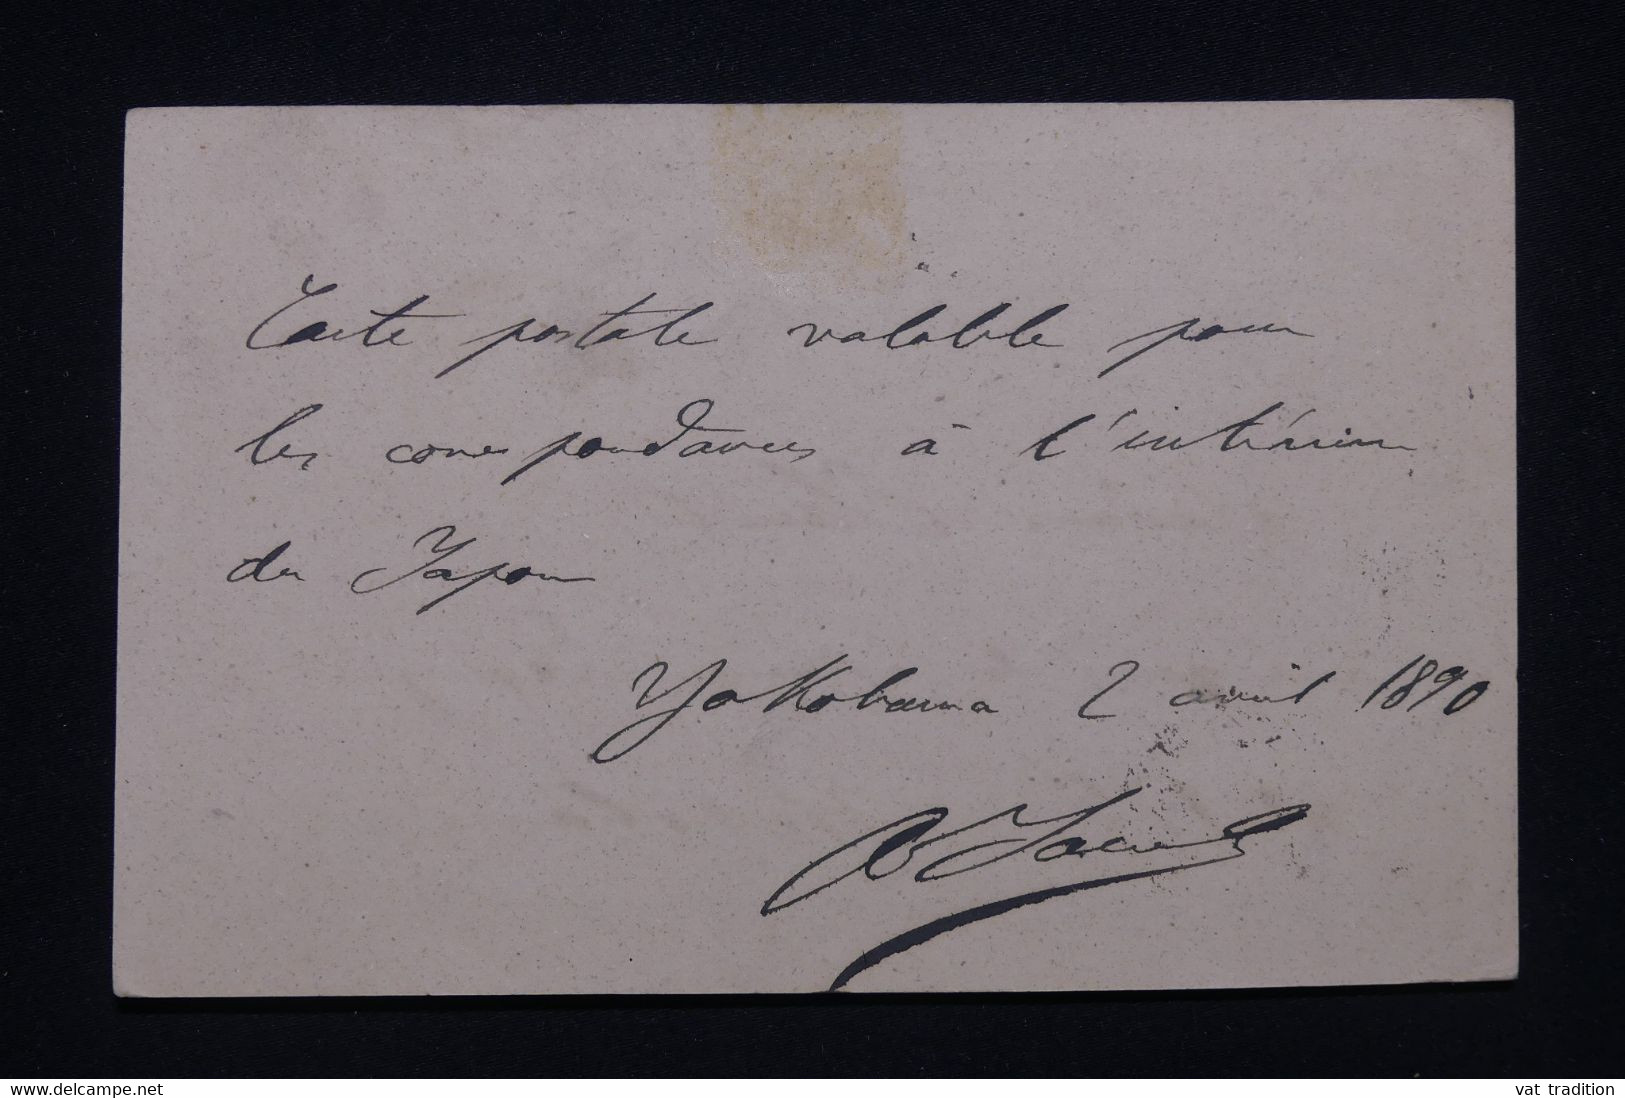 Carte postale valable pour
les correspondances à l'intérieur
du Japon
Yokohama 2 avril 1890
www.delcampe.net
vat tradition